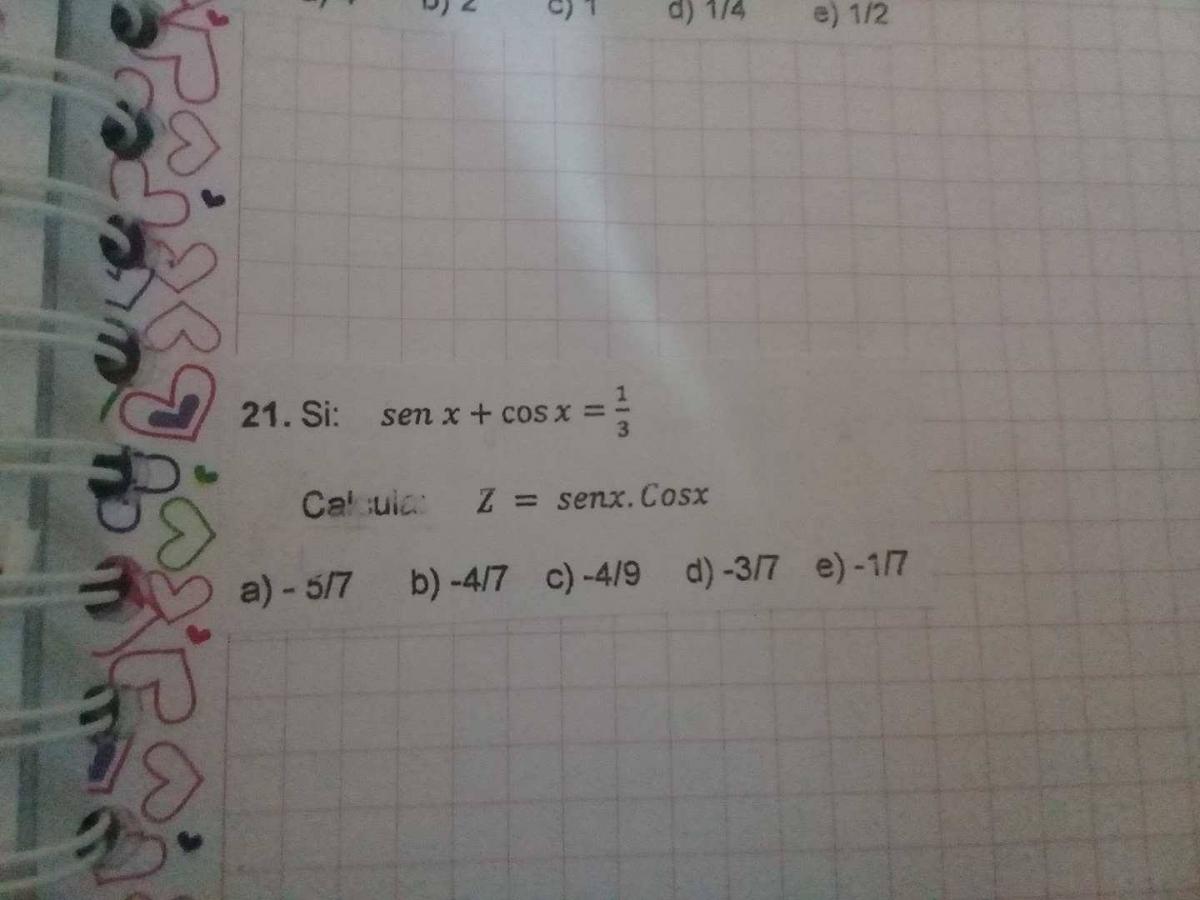 b) 2 c) 1 d) 1/4 e) 1/2
21. Si: sen x + cos x = 1/3
Z = senx. Cosx
a) - 5/7 b) -4/7 c) -4/9 d) -3/7 e) -1/7